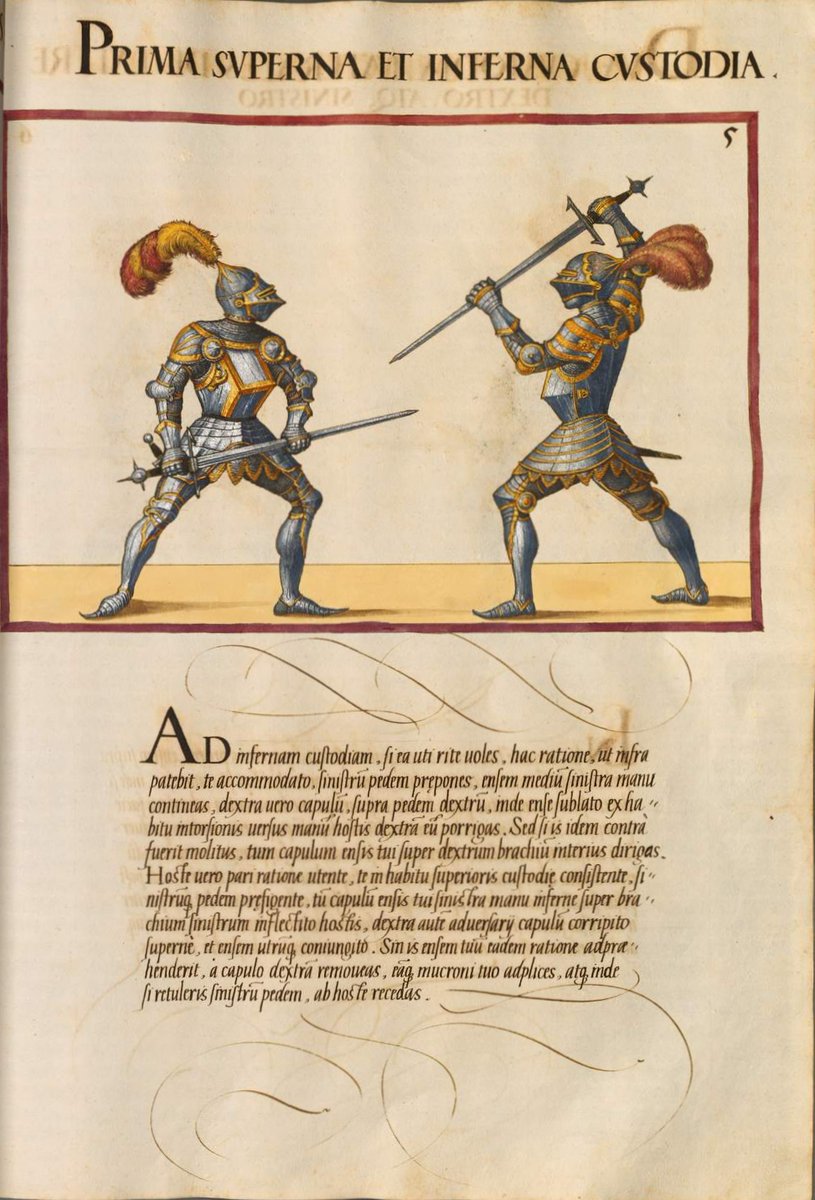 PRIMA SVPERNA ET INFERNA CVSTODIA.
5
AD infernam cuſtodiam, ſi ea uti rite uoles, hac ratione, ut infra
patebit, te accommodato, ſiniſtrũ pedem prępones, enſem mediũ ſiniſtra manu
contineas, dextra uero capulũ, ſupra pedem dextrũ, inde enſe ſublato ex ha〃
bitu intorſionis uerſus manũ hoſtis dextrã eũ porrigas. Sed ſi is idem contrà
fuerit molitus, tum capulum enſis tui ſuper dextrum brachiũ interius dirigas.
Hoſte uero pari ratione utente, te in habitu ſuperioris cuſtodię conſiſtente, ſi〃
niſtrũq pedem pręfigente, tũ capulũ enſis tui ſiniſtra manu inferne ſuper bra〃
chium ſiniſtrum inflectito hoſtis, dextra autẽ aduerſarij capulũ corripito
ſupernè, et enſem utrũq coniungito. Sin is enſem tuũ eadem ratione adpræ〃
henderit, à capulo dextrã remoueas, eãq mucroni tuo adplices, atq inde
ſi retuleris ſiniſtrũ pedem, ab hoſte recedas.